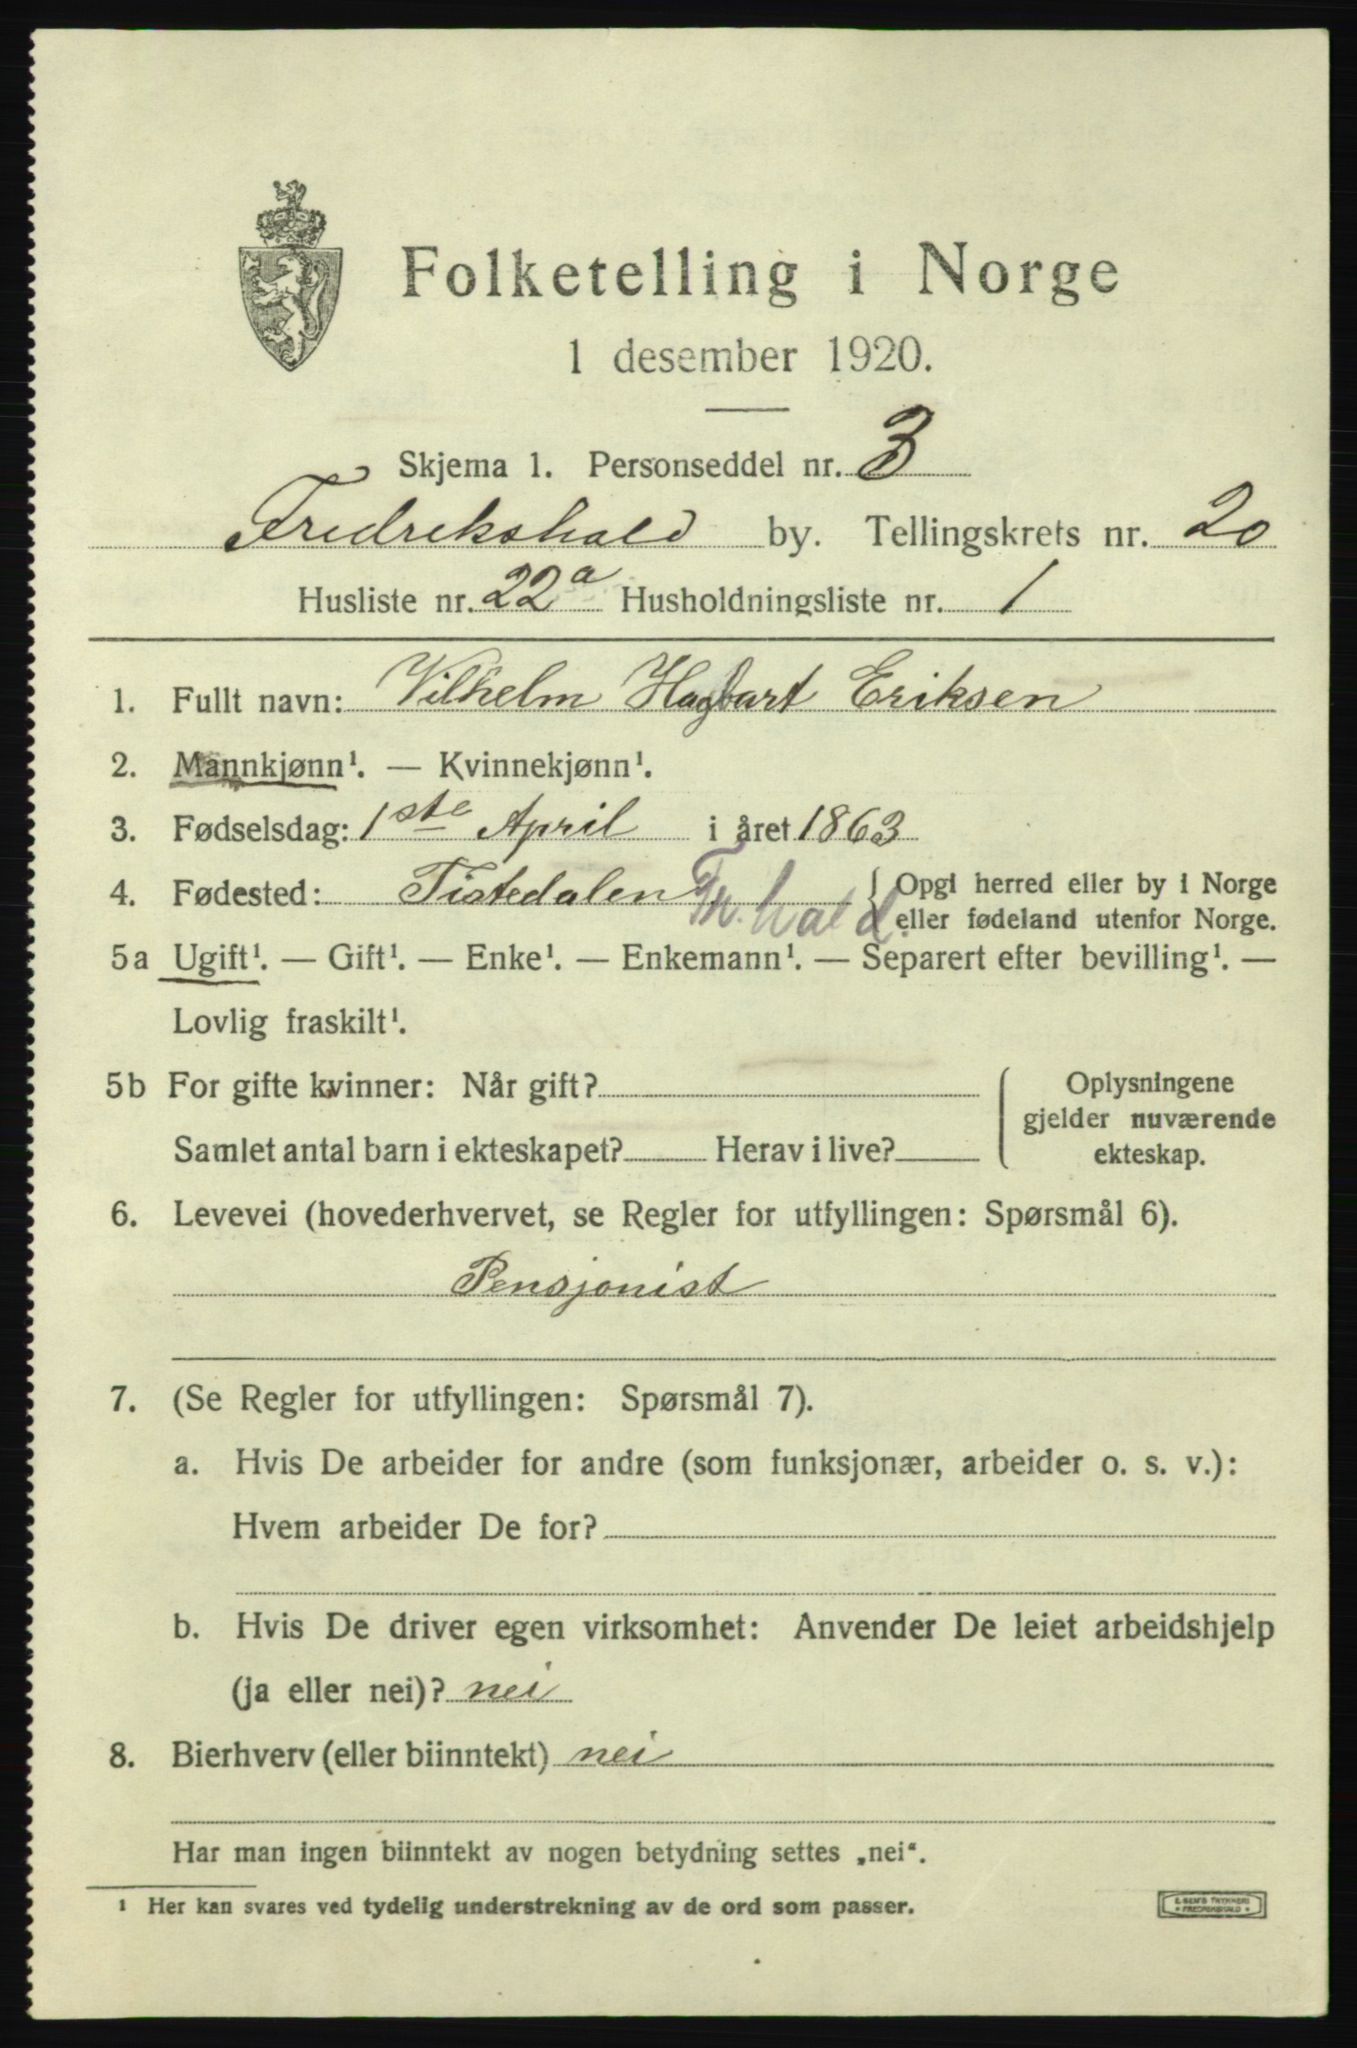 Folketelling i Norge
1 desember 1920.
Skjema 1. Personseddel nr. 3
Fredrikshald by. Tellingskrets nr. 20
Husliste nr. 22a Husholdningsliste nr. 1
1. Fullt navn: Vilhelm Hagbart Eriksen
2. Mannkjønn¹. — Kvinnekjønn¹.
3. Fødselsdag: 1ste April i året 1863
4. Fødested: Tistedalen Fr.hald. { Opgi herred eller by i Norge
eller fødeland utenfor Norge.
5a Ugift¹. — Gift¹. — Enke¹. — Enkemann¹. — Separert efter bevilling¹. —
Lovlig fraskilt¹.
5b For gifte kvinner: Når gift?
Samlet antal barn i ekteskapet? Herav i live?
Oplysningene
gjelder nuværende
ekteskap.
6. Levevei (hovederhvervet, se Regler for utfyllingen: Spørsmål 6).
Pensjonist
7. (Se Regler for utfyllingen: Spørsmål 7).
a. Hvis De arbeider for andre (som funksjonær, arbeider o. s. v.):
Hvem arbeider De for?
b. Hvis De driver egen virksomhet: Anvender De leiet arbeidshjelp
(ja eller nei)? nei
8. Bierhverv (eller biinntekt) nei
Har man ingen biinntekt av nogen betydning settes „nei“.
¹ Her kan svares ved tydelig understrekning av de ord som passer.
TRYKKERI
FREDRIKSHALD